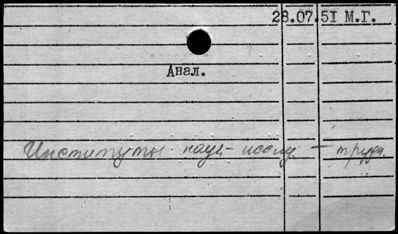 28.07.51 М.Г.
Анал.
Институты научн- исслед - труды